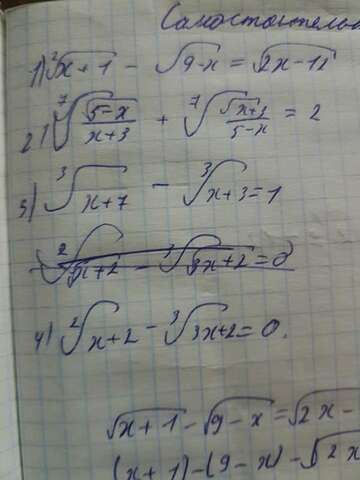 Самостоятельн
1) ²√x+1 - √9-x = √2x-12
2) ⁷√(√5-x / x+3) + ⁷√(√x+3 / 5-x) = 2
3) ³√x+7 - ³√x+3 = 1
4) ²√x+2 - ³√3x+2 = 0.
√x+1 - √9-x = √2x-
(x+1)-(9-x)-√2x